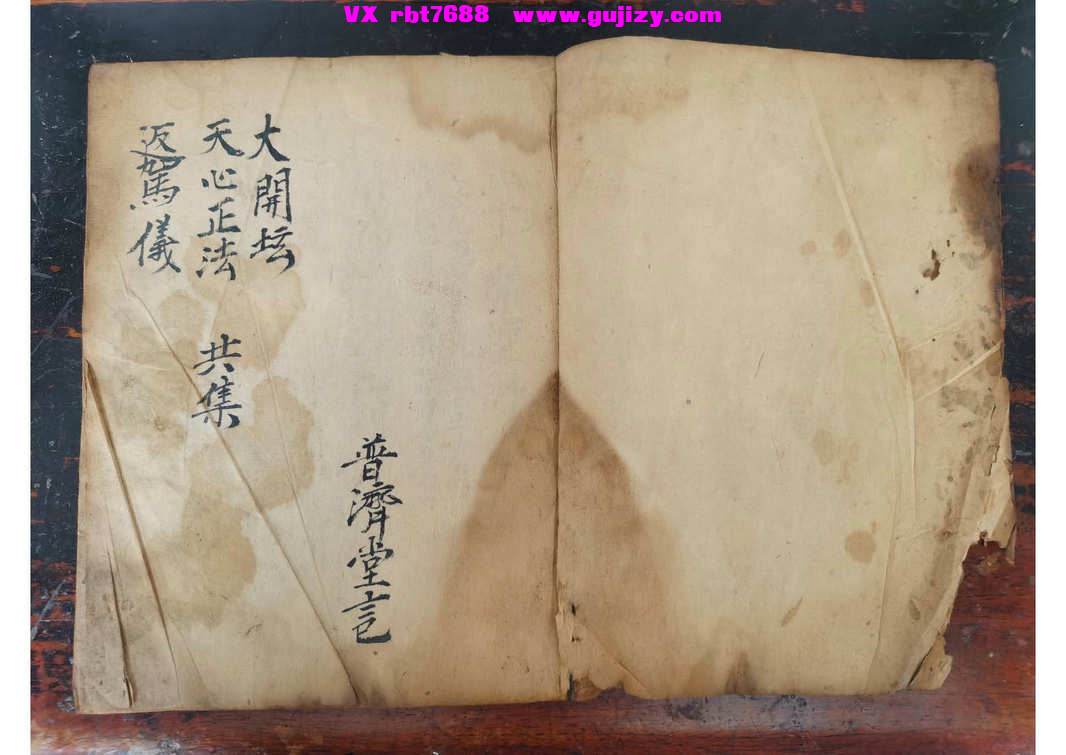 VX rbt7688 www.gujizy.com
大開坛
天心正法 共集
返駕儀
普濟堂記